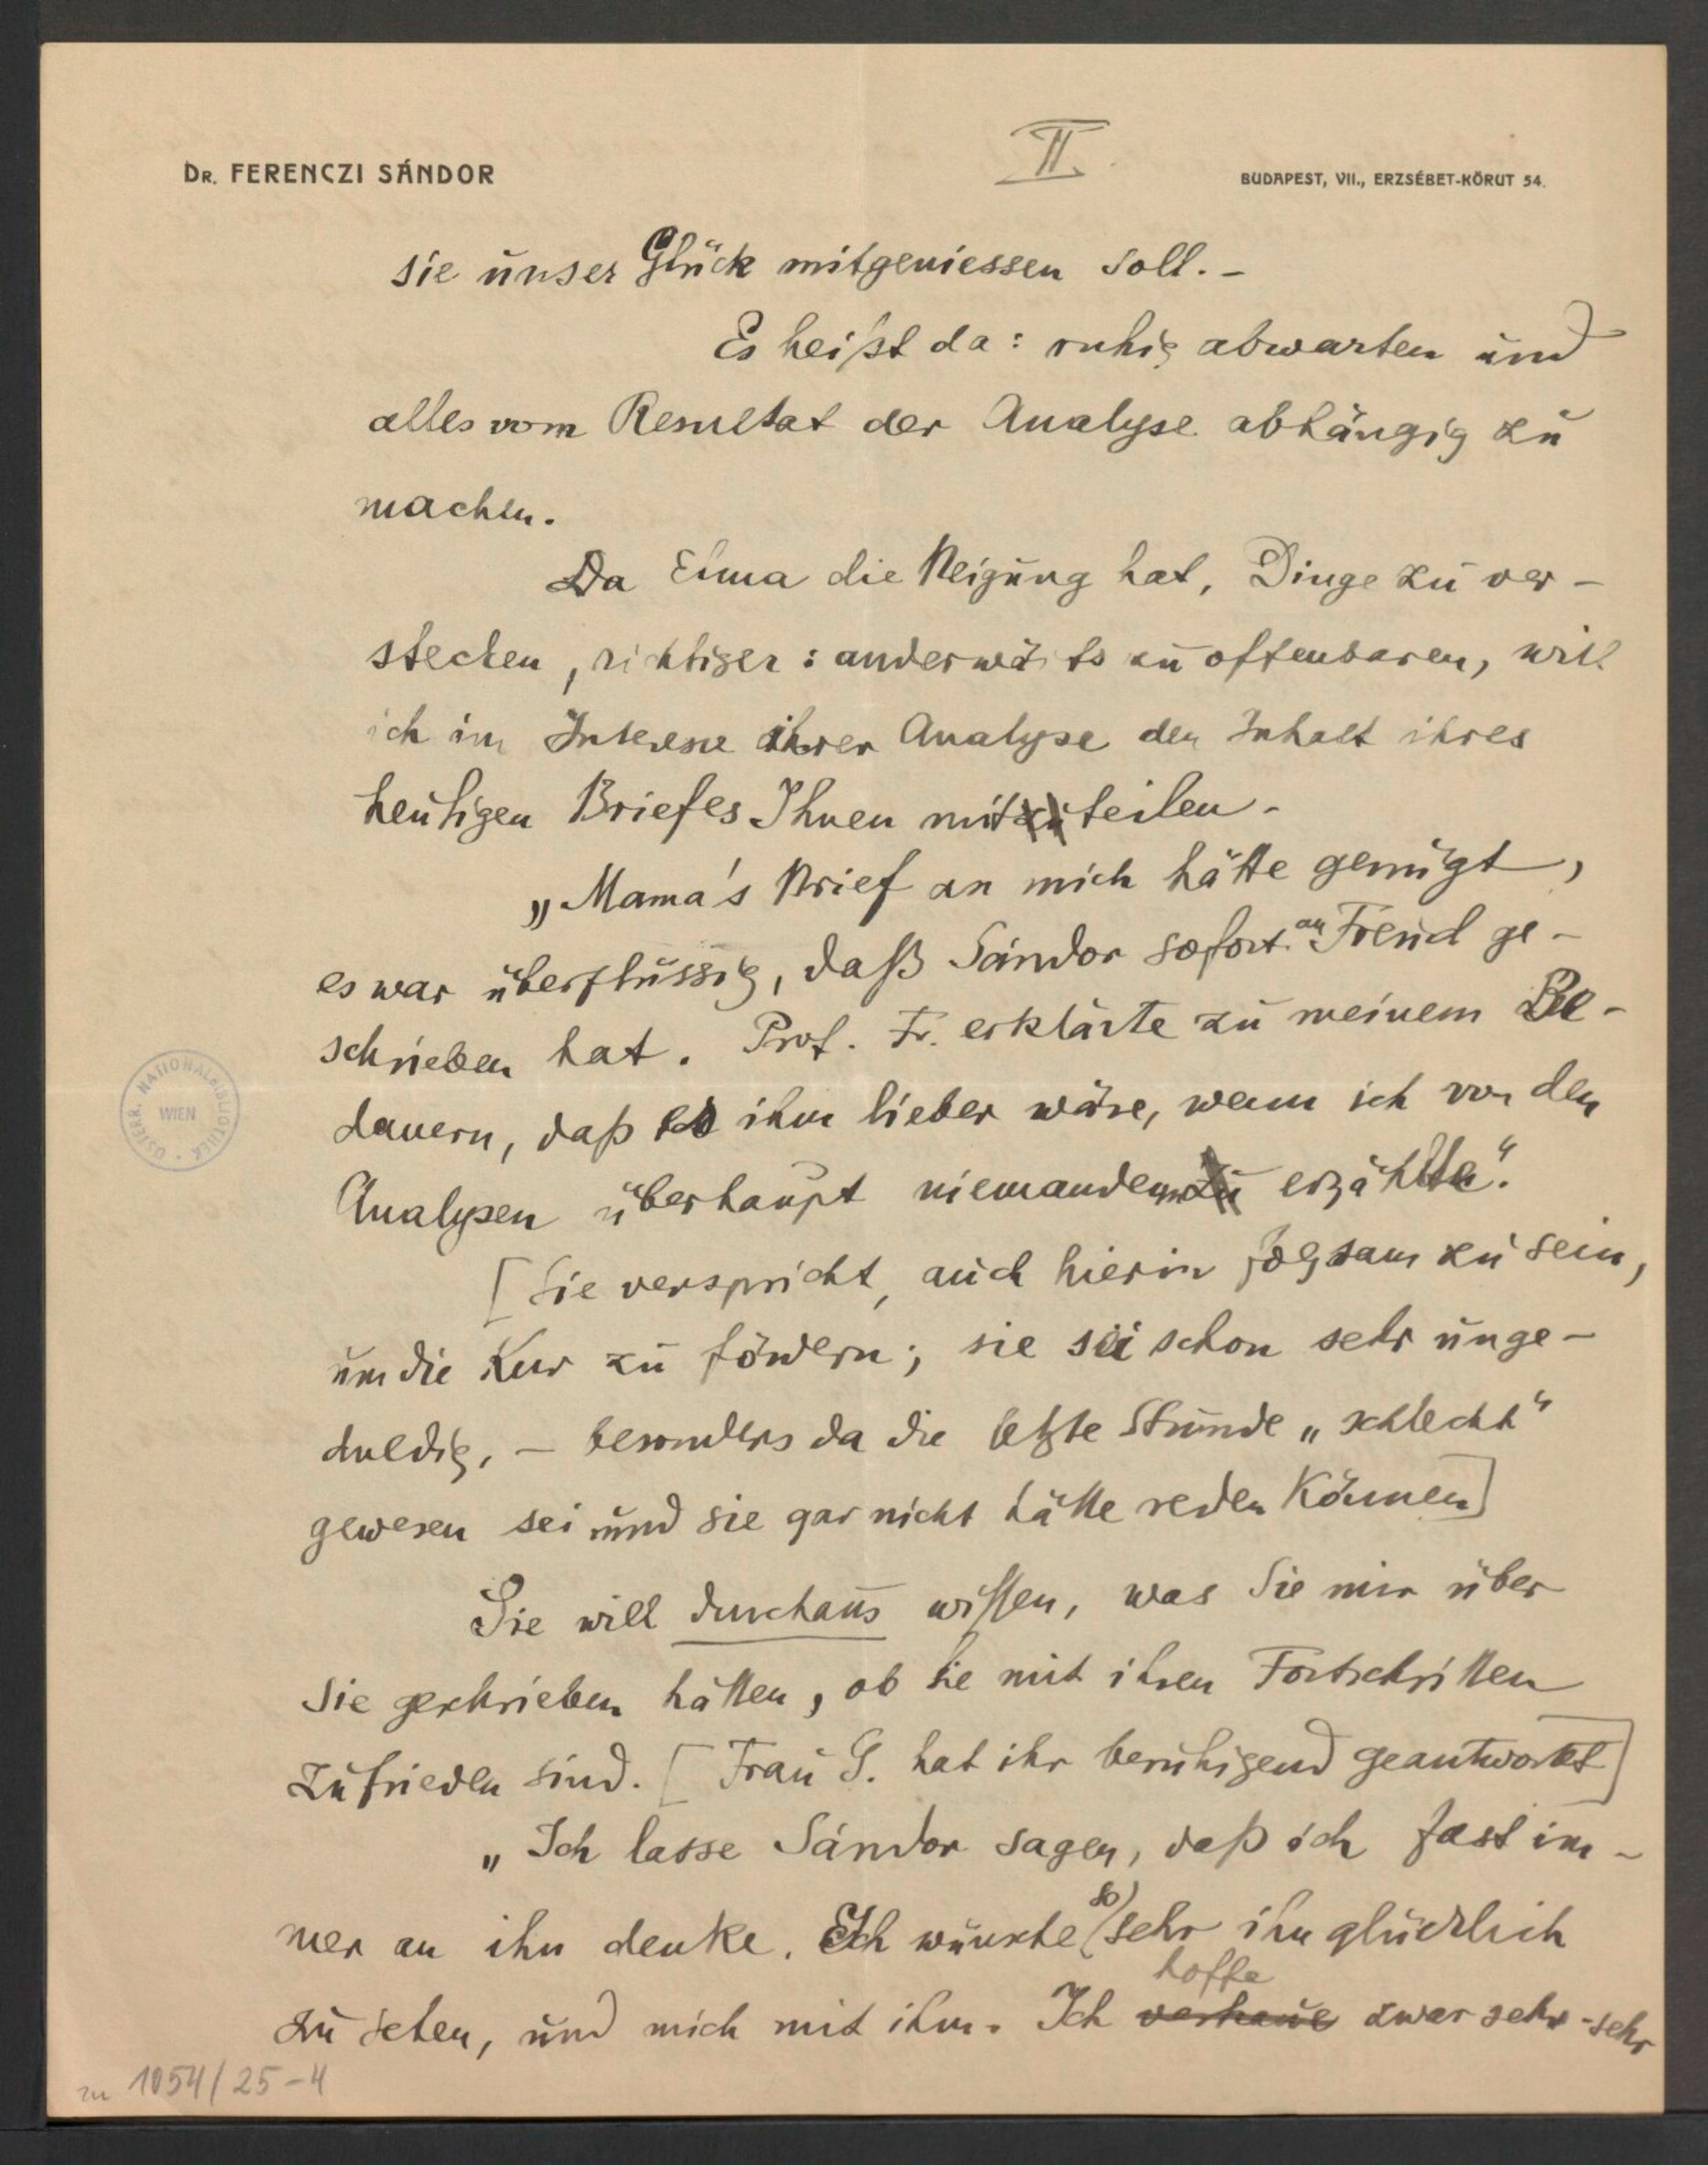 Dr. FERENCZI SÁNDOR
II.
BUDAPEST, VII., ERZSÉBET-KÖRUT 54.
sie unser Glück mitgeniessen soll. -
Es heißt da: ruhig abwarten und
alles vom Resultat der Analyse abhängig zu
machen.
Da Elma die Neigung hat, Dinge zu ver-
stecken, richtiger: anderwärts zu offenbaren, will
ich im Interesse ihrer Analyse den Inhalt ihres
heutigen Briefes Ihnen mitzuteilen.
„Mama's Brief an mich hätte genügt,
es war überflüssig, daß Sándor sofort an Freud ge-
schrieben hat. Prof. Fr. erklärte zu meinem Be-
dauern, daß es ihm lieber wäre, wenn ich von den
Analysen überhaupt niemandem zu erzählte“.
[Sie verspricht, auch hierin folgsam zu sein,
um die Kur zu fördern; sie sei schon sehr unge-
duldig, – besonders da die letzte Stunde „schlecht“
gewesen sei und sie gar nicht hätte reden können]
Sie will durchaus wissen, was Sie mir über
sie geschrieben hätten, ob Sie mit ihren Fortschritten
zufrieden sind. [Frau G. hat ihr beruhigend geantwortet]
„Ich lasse Sándor sagen, daß ich fast im-
mer an ihn denke. Ich wünschte so sehr ihn glücklich
zu sehen, und mich mit ihm. Ich hoffe zwar sehr-sehr
zu 1054/25-4
ÖSTERR. NATIONALBIBLIOTHEK
WIEN